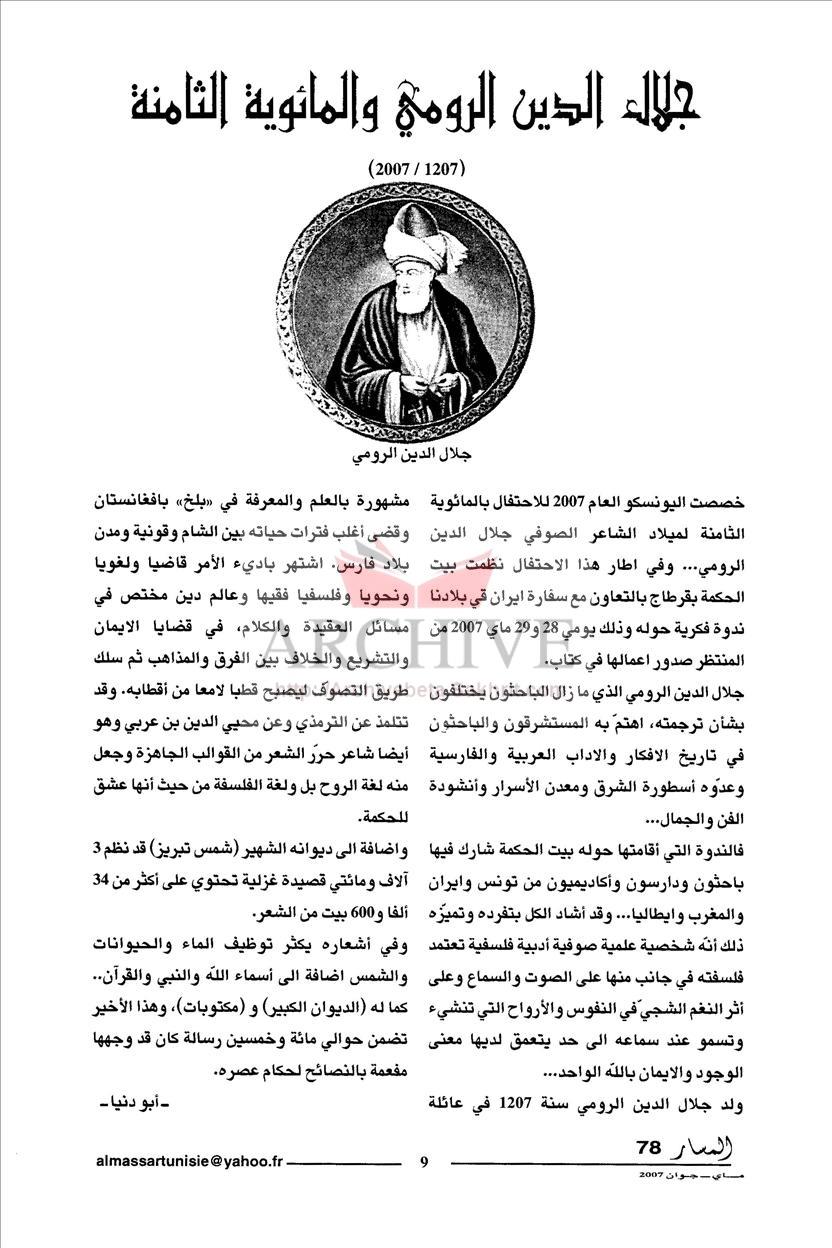 جلال الدين الرومي والمائوية الثامنة
(2007 / 1207)
جلال الدين الرومي
خصصت اليونسكو العام 2007 للاحتفال بالمائوية
الثامنة لميلاد الشاعر الصوفي جلال الدين
الرومي... وفي اطار هذا الاحتفال نظمت بيت
الحكمة بقرطاج بالتعاون مع سفارة ايران قي بلادنا
ندوة فكرية حوله وذلك يومي 28 و29 ماي 2007 من
المنتظر صدور اعمالها في كتاب.
جلال الدين الرومي الذي ما زال الباحثون يختلفون
بشأن ترجمته، اهتمّ به المستشرقون والباحثون
في تاريخ الافكار والاداب العربية والفارسية
وعدّوه أسطورة الشرق ومعدن الأسرار وأنشودة
الفن والجمال...
فالندوة التي أقامتها حوله بيت الحكمة شارك فيها
باحثون ودارسون وأكاديميون من تونس وايران
والمغرب وايطاليا... وقد أشاد الكل بتفرده وتميّزه
ذلك أنّه شخصية علمية صوفية أدبية فلسفية تعتمد
فلسفته في جانب منها على الصوت والسماع وعلى
أثر النغم الشجيّ في النفوس والأرواح التي تنشيء
وتسمو عند سماعه الى حد يتعمق لديها معنى
الوجود والايمان بالله الواحد...
ولد جلال الدين الرومي سنة 1207 في عائلة
مشهورة بالعلم والمعرفة في «بلخ» بافغانستان
وقضى أغلب فترات حياته بين الشام وقونية ومدن
بلاد فارس. اشتهر باديء الأمر قاضيا ولغويا
ونحويا وفلسفيا فقيها وعالم دين مختص في
مسائل العقيدة والكلام، في قضايا الايمان
والتشريع والخلاف بين الفرق والمذاهب ثم سلك
طريق التصوّف ليصبح قطبا لامعا من أقطابه. وقد
تتلمذ عن الترمذي وعن محيي الدين بن عربي وهو
أيضا شاعر حرّر الشعر من القوالب الجاهزة وجعل
منه لغة الروح بل ولغة الفلسفة من حيث أنها عشق
للحكمة.
واضافة الى ديوانه الشهير (شمس تبريز) قد نظم 3
آلاف ومائتي قصيدة غزلية تحتوي على أكثر من 34
ألفا و600 بيت من الشعر.
وفي أشعاره يكثر توظيف الماء والحيوانات
والشمس اضافة الى أسماء الله والنبي والقرآن..
كما له (الديوان الكبير) و (مكتوبات)، وهذا الأخير
تضمن حوالي مائة وخمسين رسالة كان قد وجهها
مفعمة بالنصائح لحكام عصره.
ـ أبو دنيا ـ
ARCHIVE
المسار 78
ماي ـ جوان 2007
9
almassartunisie@yahoo.fr